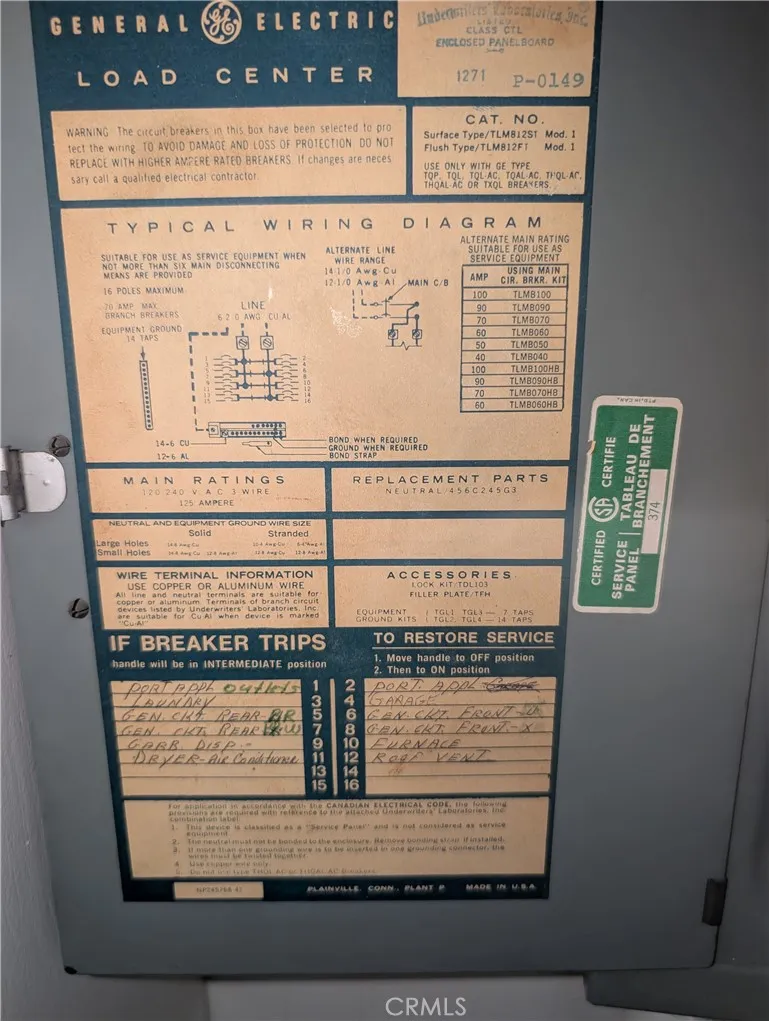 GENERAL GE ELECTRIC
LOAD CENTER
Underwriters' Laboratories, Inc.
LISTED
CLASS CTL
ENCLOSED PANELBOARD
1271 P-0149
WARNING The circuit breakers in this box have been selected to pro
tect the wiring. TO AVOID DAMAGE AND LOSS OF PROTECTION DO NOT
REPLACE WITH HIGHER AMPERE RATED BREAKERS. If changes are neces
sary call a qualified electrical contractor.
CAT. NO.
Surface Type/TLM812S1 Mod. 1
Flush Type/TLM812F1 Mod. 1
USE ONLY WITH GE TYPE
TQP, TQL, TQL-AC, TQAL-AC, THQL-AC,
THQAL-AC OR TXQL BREAKERS.
TYPICAL WIRING DIAGRAM
SUITABLE FOR USE AS SERVICE EQUIPMENT WHEN
NOT MORE THAN SIX MAIN DISCONNECTING
MEANS ARE PROVIDED
16 POLES MAXIMUM
70 AMP. MAX.
BRANCH BREAKERS
EQUIPMENT GROUND
14 TAPS
LINE
6 2/0 AWG. CU AL
ALTERNATE LINE
WIRE RANGE
14-1/0 Awg-Cu
12-1/0 Awg-Al
MAIN C/B
1 2
3 4
5 6
7 8
9 10
11 12
13 14
15 16
14-6 CU
12-6 AL
BOND WHEN REQUIRED
GROUND WHEN REQUIRED
BOND STRAP
ALTERNATE MAIN RATING
SUITABLE FOR USE AS
SERVICE EQUIPMENT
AMP USING MAIN CIR. BRKR. KIT
100 TLMB100
90 TLMB090
70 TLMB070
60 TLMB060
50 TLMB050
40 TLMB040
100 TLMB100HB
90 TLMB090HB
70 TLMB070HB
60 TLMB060HB
MAIN RATINGS
120/240 V. A.C. 3 WIRE
125 AMPERE
REPLACEMENT PARTS
NEUTRAL 456C245G3
NEUTRAL AND EQUIPMENT GROUND WIRE SIZE
Solid Stranded
Large Holes
Small Holes
WIRE TERMINAL INFORMATION
USE COPPER OR ALUMINUM WIRE
All line and neutral terminals are suitable for
copper or aluminum. Terminals of branch circuit
devices listed by Underwriters' Laboratories, Inc.
are suitable for Cu/Al when device is marked
"Cu-Al"
ACCESSORIES
LOCK KIT/TDL103
FILLER PLATE/TFH
EQUIPMENT ( TGL1, TGL3 — 7 TAPS
GROUND KITS ( TGL2, TGL4 — 14 TAPS
IF BREAKER TRIPS
handle will be in INTERMEDIATE position
TO RESTORE SERVICE
1. Move handle to OFF position
2. Then to ON position
PORT APPL outlets 1 2 PORT. APPL
LAUNDRY 3 4 GARAGE
GEN. CKT. REAR-BR 5 6 GEN. CKT. FRONT-
GEN. CKT. REAR 7 8 GEN. CKT. FRONT.-X
GARB. DISP.- 9 10 FURNACE
DRYER-Air Conditionr 11 12 ROOF VENT
13 14
15 16
For application in accordance with the CANADIAN ELECTRICAL CODE, the following
provisions are required with reference to the attached Underwriters' Laboratories, Inc.
combination label:
1. This device is classified as a "Service Panel" and is not considered as service
equipment
2. The neutral must not be bonded to the enclosure. Remove bonding strap if installed.
3. If more than one grounding wire is to be inserted in one grounding connector, the
wires must be twisted together.
4. Use copper wire only.
5. Do not use type THQL-AC or THQAL-AC breakers.
PLAINVILLE, CONN., PLANT P MADE IN U.S.A.
PTD. IN CAN.
CERTIFIED SA CERTIFIE
SERVICE PANEL
TABLEAU DE BRANCHEMENT
374
CRMLS